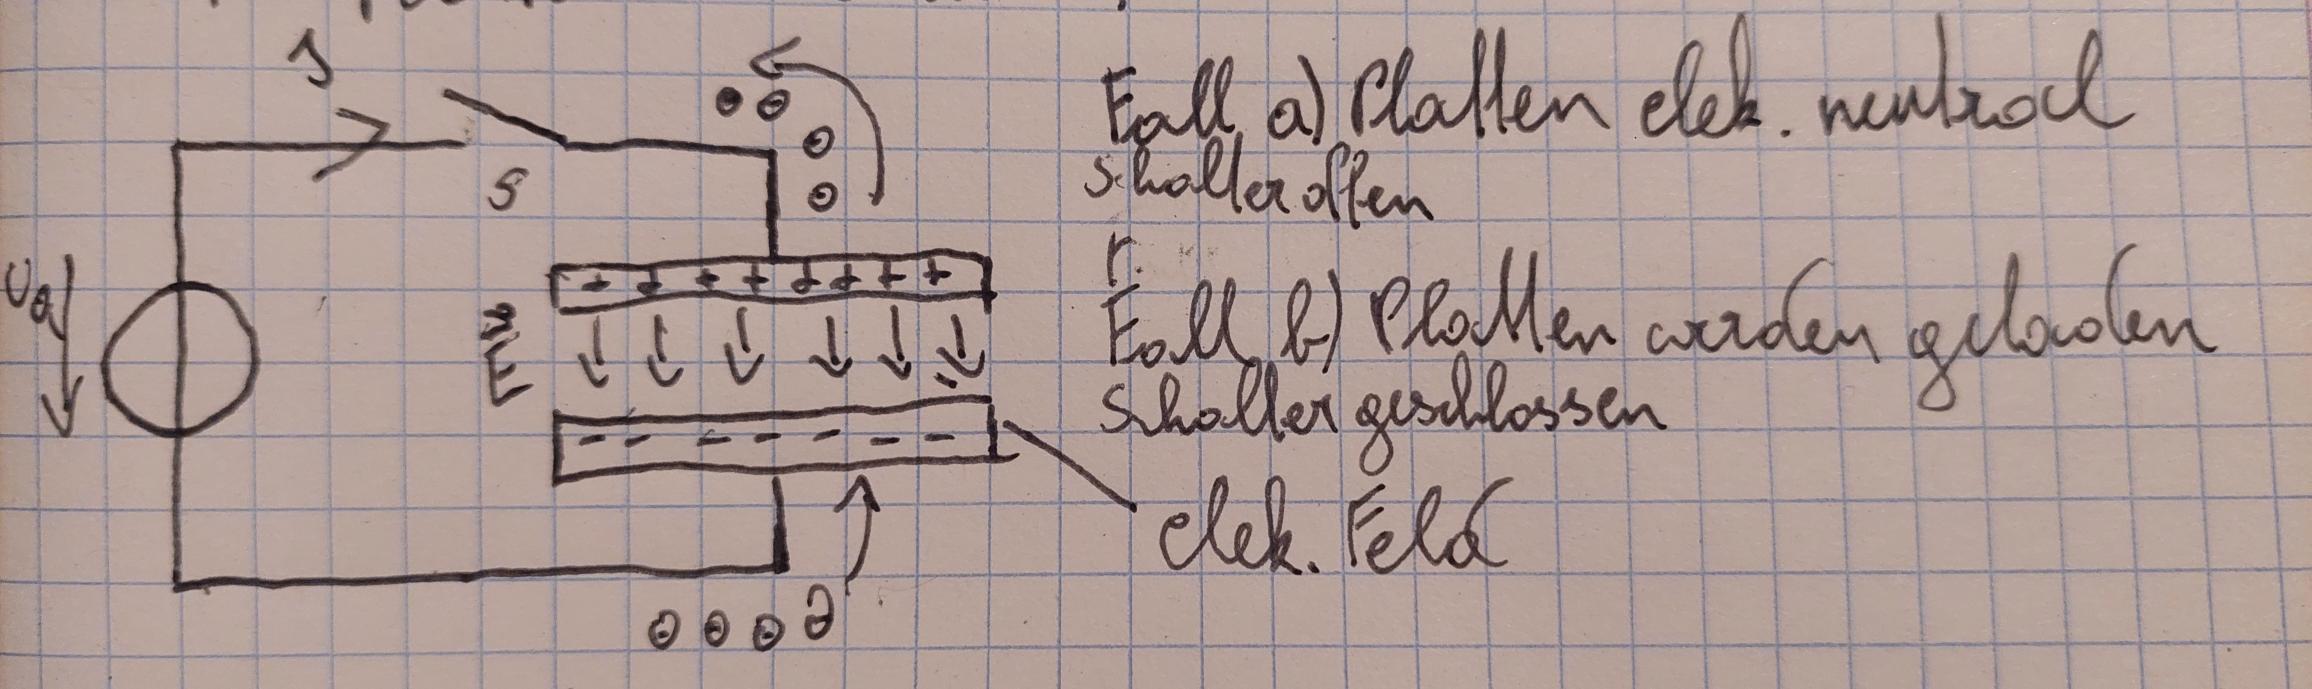 I
S
U₀
+ + + + + + + +
E
- - - - - - -
Fall a) Platten elek. neutral
Schalter offen
Fall b) Platten werden geladen
Schalter geschlossen
elek. Feld